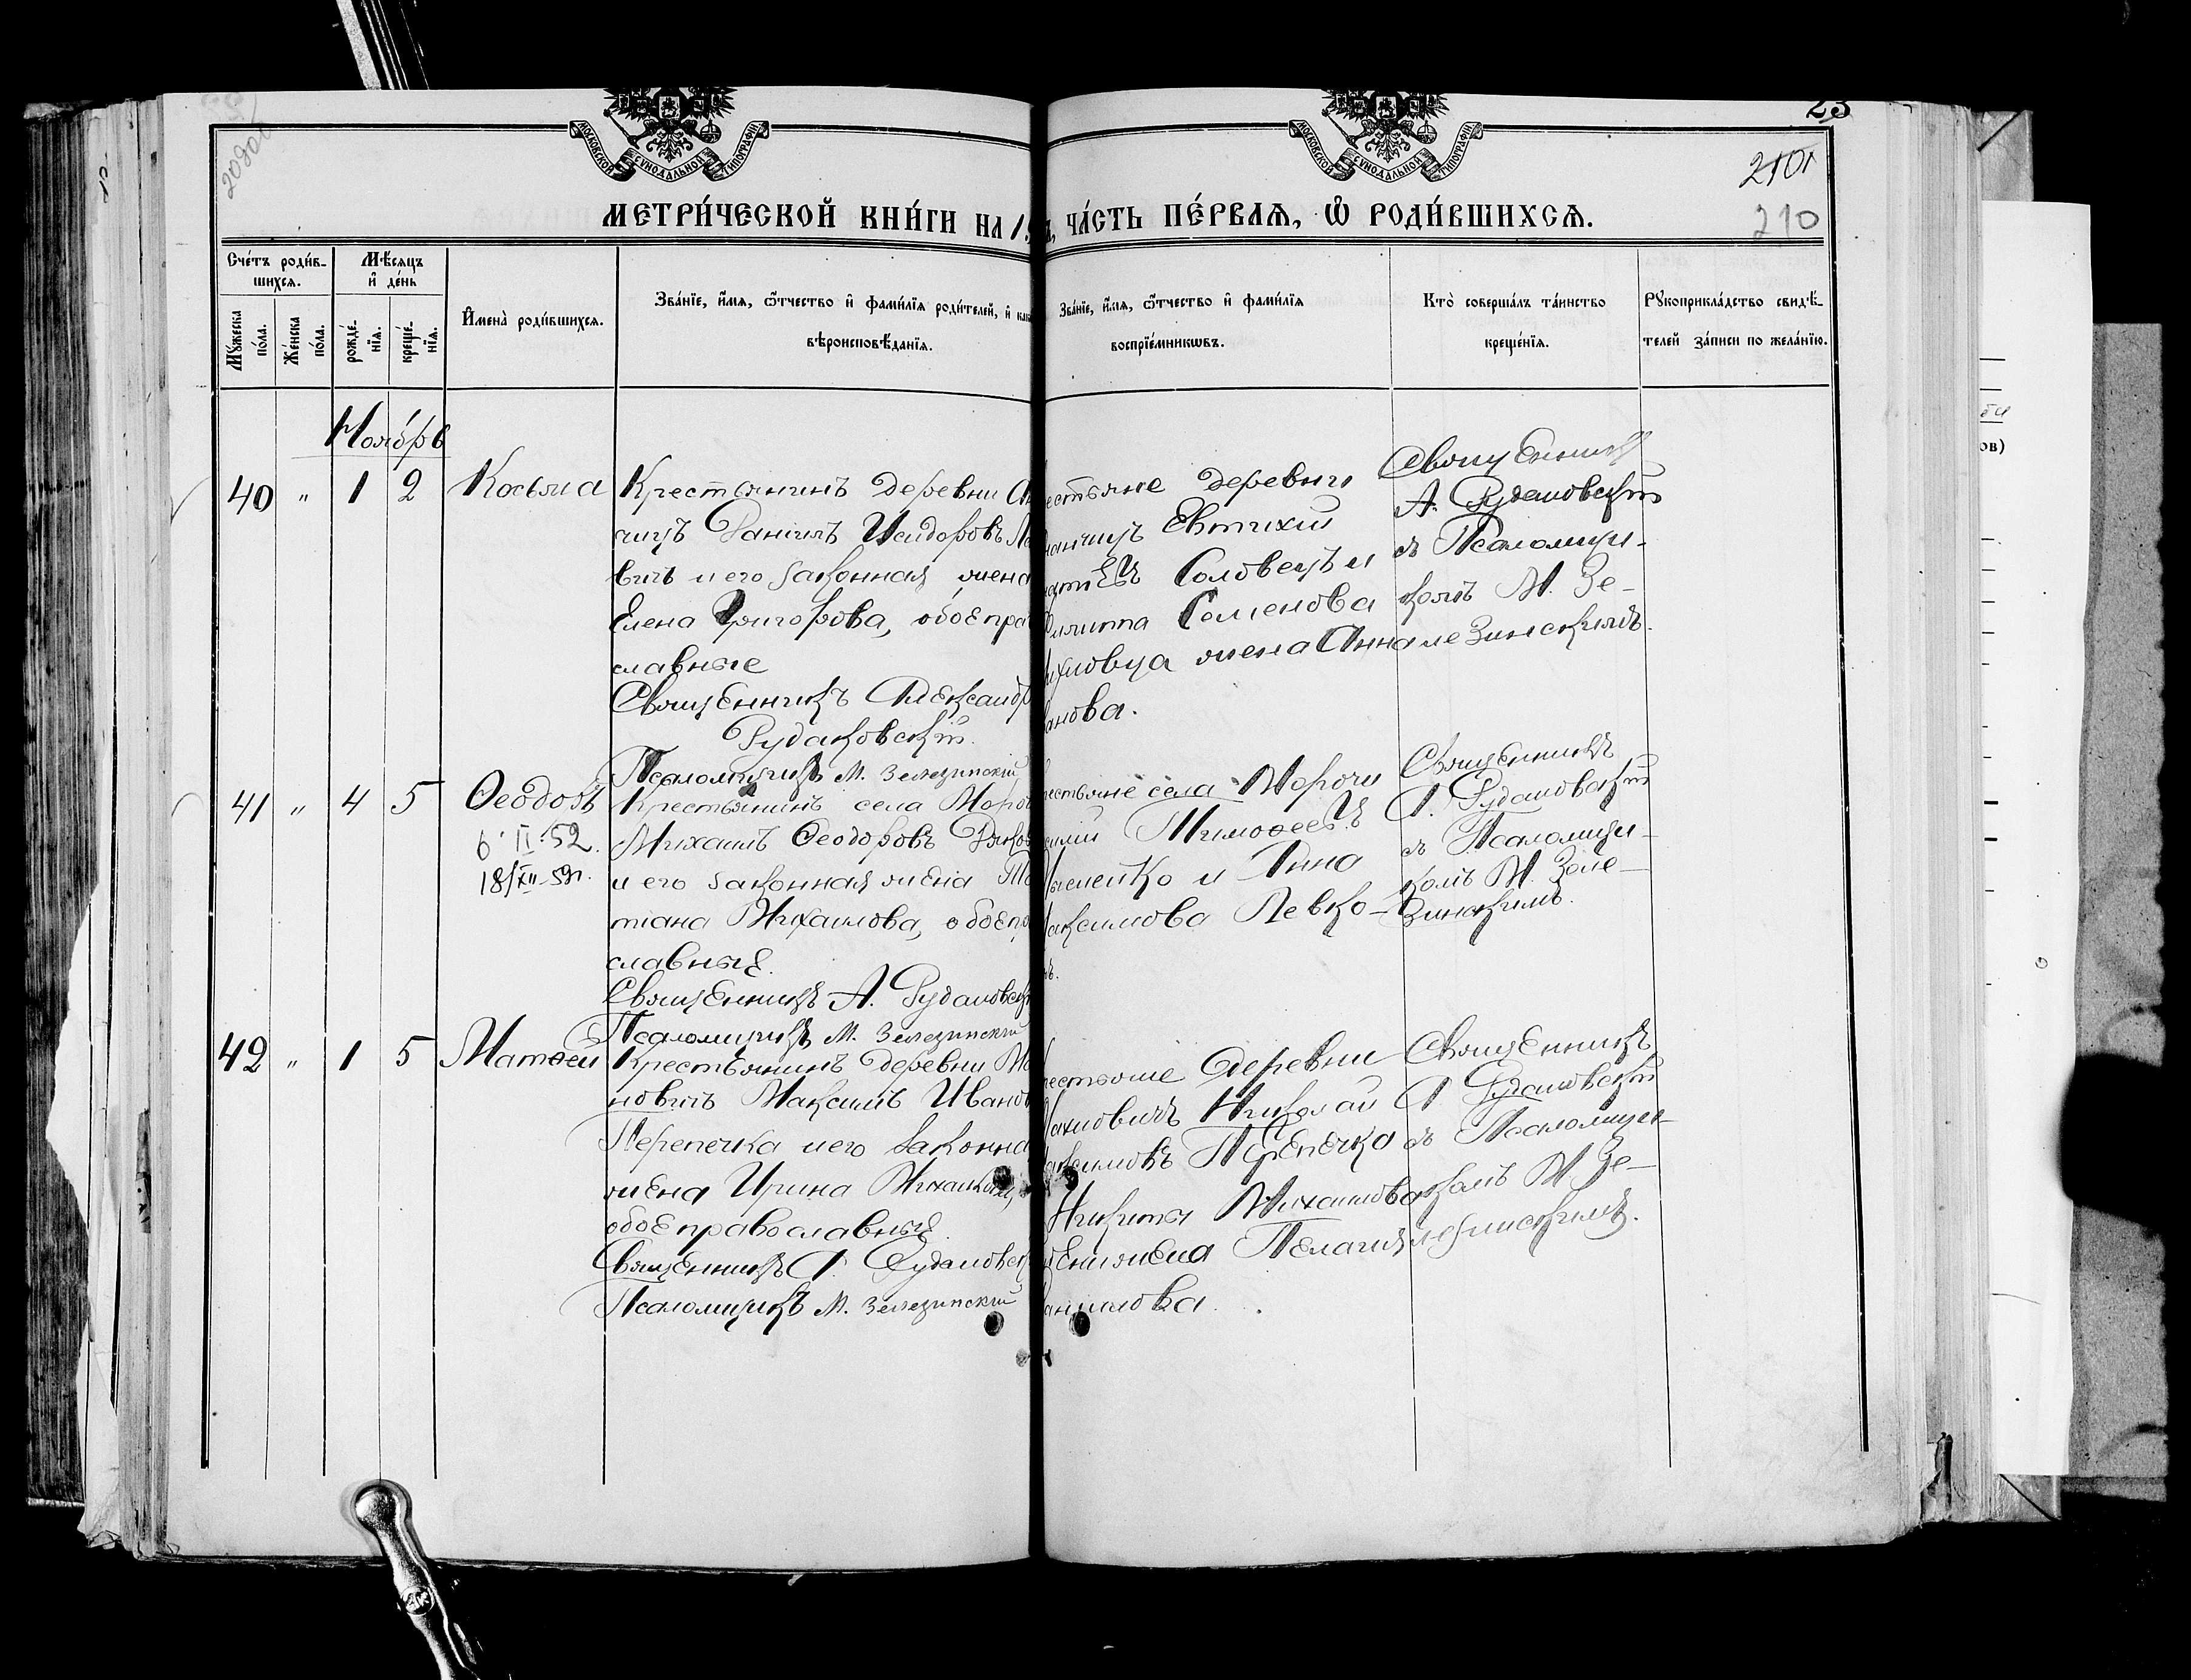 23
2101
210
МОСКОВСКОЙ СѴНОДАЛЬНОЙ ТИПОГРАФІИ
МОСКОВСКОЙ СѴНОДАЛЬНОЙ ТИПОГРАФІИ
МЕТРИ́ЧЕСКОЙ КНИ́ГИ НА 19
ЧА́СТЬ ПЕ́РВАѦ, Ѡ РОДИ́ВШИХСѦ.
Сче́тъ роди́в-
шихсѧ.
Мꙋ́жеска по́ла.
Же́нска по́ла.
Мѣ́сѧцъ и де́нь
рожде́-нїѧ.
креще́-нїѧ.
И҆мена̀ роди́вшихсѧ.
Зва́нїе, и҆́мѧ, ѻ҆́тчество и҆ фами́лїѧ роди́телей, и҆ как
вѣроисповѣ́данїѧ.
Зва́нїе, и҆́мѧ, ѻ҆́тчество и҆ фами́лїѧ
воспрїе́мникѡвъ.
Кто̀ соверша́лъ та́инство
креще́нїѧ.
Рꙋкоприкла́дство свидѣ́-
телей за́писи по жела́нїю.
Ноябрь
40 " 1 2 Косьма
Крестьянинъ деревни
чичъ Данiилъ Исидоровъ
вичъ и его законная жена
Елена Григорова, обое пра
славные
Священникъ Александр
Рудаковскій.
Псаломщикъ М. Зелезинскій
естьяне деревни
Евтихій
Соловецъ и
Филиппа Семенова
жена Анна
анова.
Священникъ
А. Рудаковскій
съ Псаломщи-
комъ М. Зе-
лезинскимъ.
41 " 4 5 Ѳеодоръ
6 II 52.
18/XII-59г.
Крестьянинъ села Моро
Михаилъ Ѳеодоровъ
и его законная жена Та
тіана Михаилова, обое пр
славные.
Священникъ А. Рудаковск
Псаломщикъ М. Зелезинскій
рестьяне села Морочи
Тимоѳеевъ
и Анна
аксимова Левко-
Священникъ
А. Рудаковскій
съ Псаломщи-
комъ М. Зеле-
зинскимъ.
42 " 1 5 Матѳей
Крестьянинъ деревни
новичъ Максимъ Иванов
Перепечка и его законна
жена Ирина Михаилова,
обое православные.
Священникъ А. Рудаковск
Псаломщикъ М. Зелезинскій
рестьяне деревни
ахновичъ Николай
аксимовъ Перепечко
Никиты Михаилова
жена Пелагія
анилова.
Священникъ
А Рудаковскій
съ Псаломщи-
комъ М Зе-
лезинскимъ.